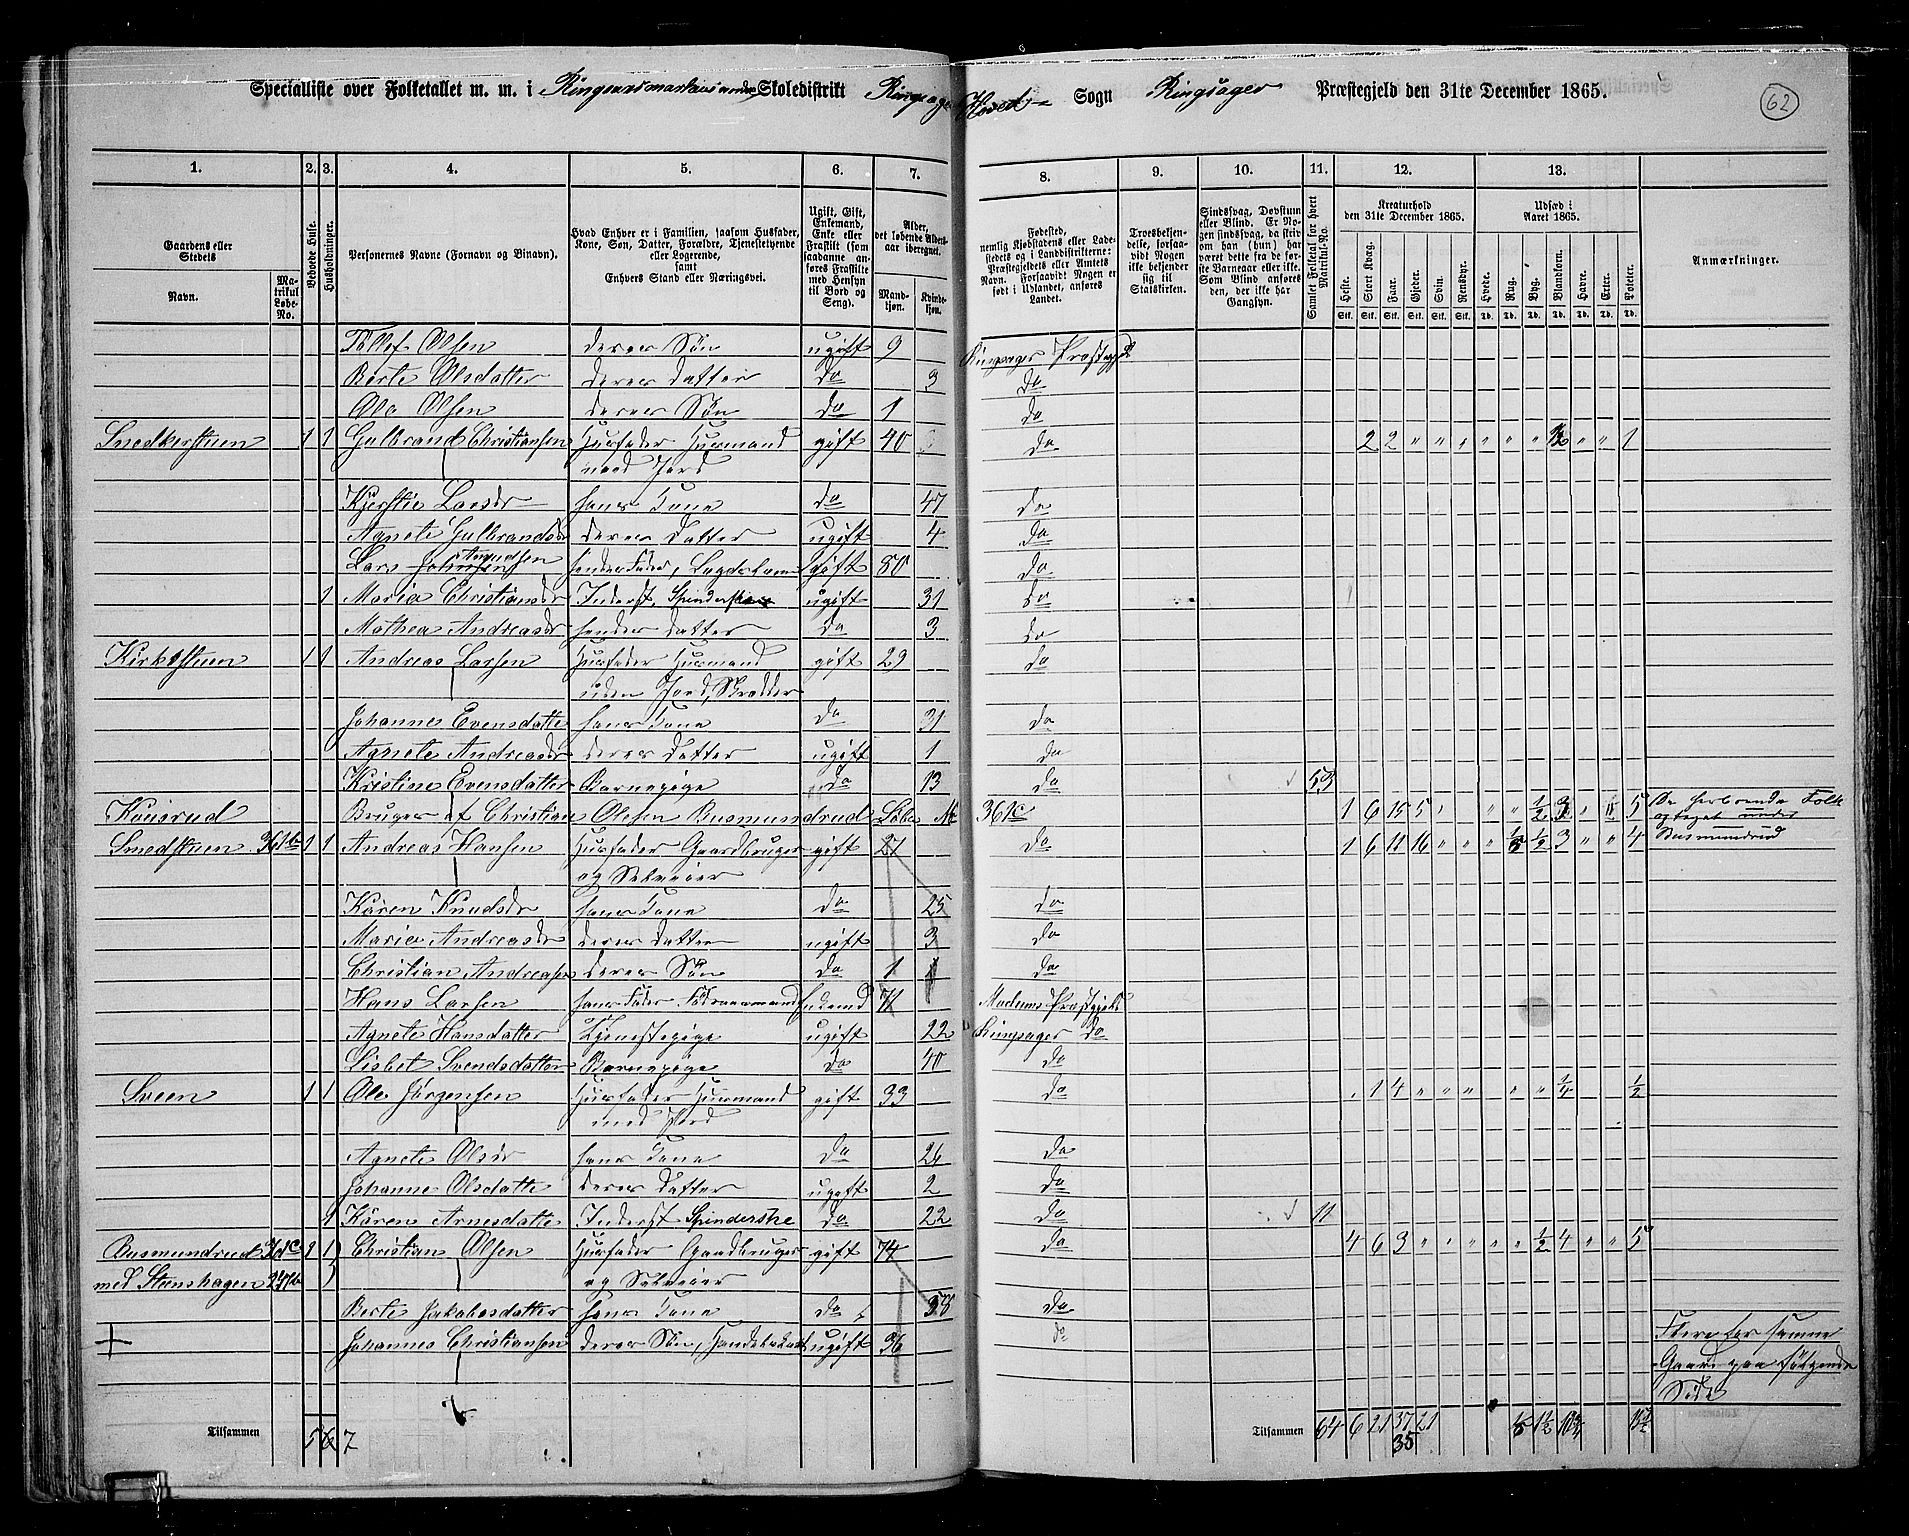 Specialliste over Folketallet m. m. i Skoledistrikt Ringsager Hoved- Sogn Ringsager Præstegjeld den 31te December 1865. 62
1. 2. 3. 4. 5. 6. 7. 8. 9. 10. 11. 12. 13.
Gaardens eller Stedets Navn. Matrikul Løbe-No. Beboede Huse. Husholdninger. Personernes Navne (Fornavn og Binavn). Hvad Enhver er i Familien, saasom Husfader, Kone, Søn, Datter, Forældre, Tjenestetyende eller Logerende, samt Enhvers Stand eller Næringsvei. Ugift, Gift, Enkemand, Enke eller Fraskilt (som saadanne anføres Fraskilte med Hensyn til Bord og Seng). Alder, det løbende Aldersaar iberegnet. Mandkjøn. Kvindekjøn.
Fødested, nemlig Kjøbstadens eller Ladestedets og i Landdistrikterne: Præstegjeldets eller Amtets Navn. Forsaavidt Nogen er født i Udlandet, anføres Landet. Troesbekjendelse, forsaavidt Nogen ikke bekjender sig til Statskirken. Sindssvag, Døvstum eller Blind. Er Nogen sindssvag, da skriv om han (hun) har været dette fra de første Barneaar eller ikke. Som Blind anføres den, der ikke har Gangsyn. Samlet Folketal for hvert Matrikul-No. Kreaturhold den 31te December 1865. Heste. Stort Kvæg. Faar. Gjeder. Svin. Rensdyr. Udsæd i Aaret 1865. Hvede. Rug. Byg. Blankorn. Havre. Erter. Poteter. Anmærkninger.
Stk. Stk. Stk. Stk. Stk. Stk. Td. Td. Td. Td. Td. Td. Td.
Tollef Olsen deres Søn ugift 9 Ringsager Præstegjeld
Berte Olsdatter deres Datter do 3 do
Ole Olsen deres Søn do 1 do
Snedkerstuen 1 1 Gulbrand Christiansen Husfader Husmand gift 40 do 2 2 " " " " " " " 1
med Jord
Kjerstie Larsdr hans Kone do 47 do
Agnete Gulbrandsdr deres Datter ugift 4 do
Lars Amundsen hendes Fader, Lægdslem gift 80 do
1 Maria Christiansdr Inderst, Spinderske ugift 31 do
Mathea Andreasdr hendes Datter do 3 do
Kirkestuen 1 1 Andreas Larsen Husfader Husmand gift 29 do
uden Jord, Skrædder
Johanne Evensdatter hans Kone do 31 do
Agnete Andreasdr deres Datter ugift 1 do
Kristine Evensdatter Barnepige do 13 do 53
Knusrud Bruges af Christian Olesen Busmundrud Løbe No 361c 1 6 15 5 " " " ½ 3 " " 5 De herboende Folk
optaget under
Smedstuen 1 1 Andreas Hansen Husfader Gaardbruger gift 27 do 1 6 11 16 " " " ½ 3 " " 4 Busmundrud
og Selveier
Karen Knudsdr hans Kone do 25 do
Maria Andreasdr deres Datter ugift 3 do
Christian Andreasen deres Søn do 1 do
Hans Larsen hans Fader Føderaadsmand Enkemd 71 Præstegjeld
Agnete Hansdatter Tjenestepige ugift 22 Ringsager do
Lisbet Svendsdatter Barnepige do 40 do
Sveen 1 1 Ole Jørgensen Husfader Husmand gift 33 do 1 4 " " " " " ¼ ½
med Jord
Agnete Olsdr hans Kone do 26 do
Johanne Olsdatter deres Datter ugift 2 do
1 Karen Arnesdatter Inderst Spinderske do 22 do 11
Busmundrud 1 1 Christian Olsen Husfader Gaardbruger gift 74 do 4 6 3 " " " " " ½ 4 " " 5
med Steenshagen og Selveier
Berte Jakobsdatter hans Kone do do
Johannes Christiansen deres Søn, ugift 36 do Flere for samme
Gaard paa følgende
Side
Tilsammen 5 6 7 Tilsammen 64 6 21 37 21 1½
35